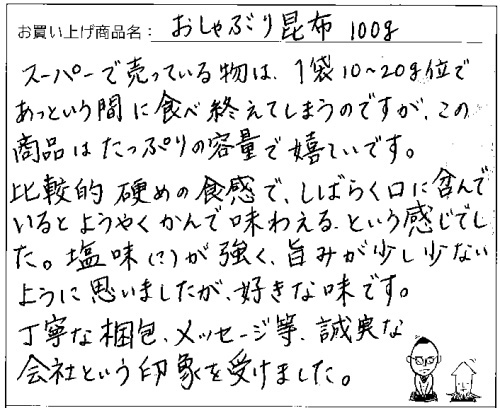 お買い上げ商品名： おしゃぶり昆布 100g
スーパーで売っている物は、1袋10〜20g位で
あっという間に食べ終えてしまうのですが、この
商品はたっぷりの容量で嬉しいです。
比較的硬めの食感で、しばらく口に含んで
いるとようやくかんで味わえる、という感じでし
た。塩味が強く、旨みが少し少ない
ように思いましたが、好きな味です。
丁寧な梱包、メッセージ等、誠実な
会社という印象を受けました。